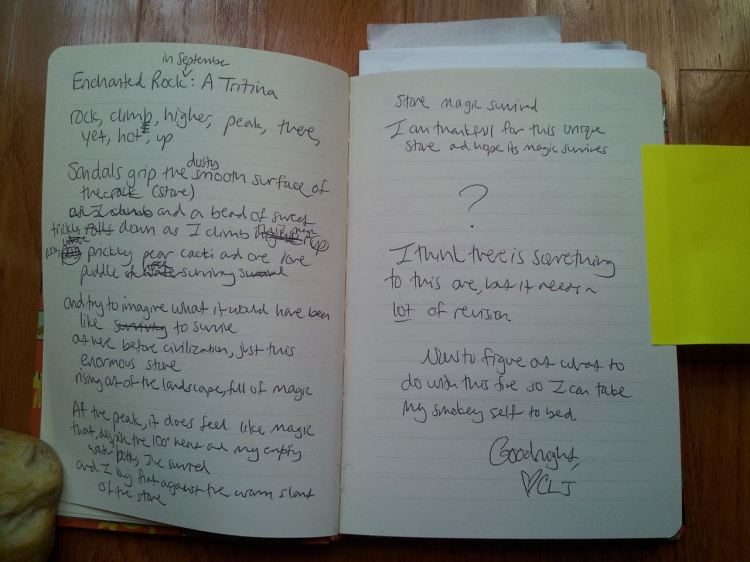 in September
Enchanted Rock: A Tritina
rock, climb, higher, peak, there,
yet, hot, up
dusty
Sandals grip the smooth surface of
the crack (stone)
as I climb and a bead of sweat
trickly rolls down as I climb up
prickly pear cacti and one lone
puddle surviving
and try to imagine what it would have been
like surviving to survive
out here before civilization, just this
enormous stone
rising out of the landscape, full of magic
At the peak, it does feel like magic
that, despite the 100° heat and my empty
water bottle, I've survived
and I lay flat against the warm slant
of the stone
stone magic survived
I am thankful for this unique
stone and hope its magic survives
?
I think there is something
to this one, but it needs a
lot of revision
Now to figure out what to
do with this fire so I can take
my smokey self to bed.
Goodnight,
♡CLJ